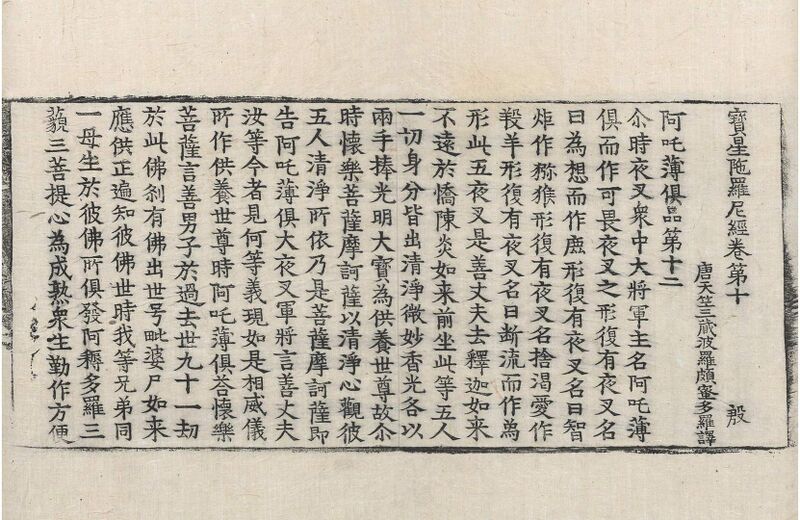 寶星陁羅尼經卷第十 殷
唐天竺三藏波羅頗蜜多羅譯
阿吒薄俱品第十二
尒時夜叉衆中大將軍主名阿吒薄
俱而作可畏夜叉之形復有夜叉名
曰為想而作鹿形復有夜叉名曰智
炬作獼猴形復有夜叉名捨渴愛作
羖羊形復有夜叉名曰斷流而作為
形此五夜叉是善丈夫去釋迦如来
不遠於憍陳炎如来前坐此等五人
一切身分皆出清淨微妙香光各以
兩手捧光明大寶為供養世尊故尒
時懷樂菩薩摩訶薩以清淨心觀彼
五人清淨所依乃是菩薩摩訶薩即
告阿吒薄俱大夜叉軍將言善丈夫
汝等今者見何等義現如是相威儀
所作供養世尊時阿吒薄俱荅懷樂
菩薩言善男子於過去世九十一劫
於此佛刹有佛出世号毗婆尸如来
應供正遍知彼佛世時我等兄弟同
一母生於彼佛所俱發阿耨多羅三
藐三菩提心為成熟衆生勤作方便